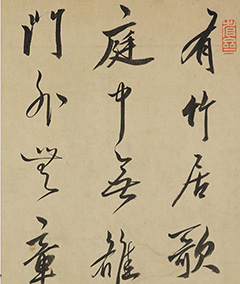 有竹居歌
庭中無雜
門外無